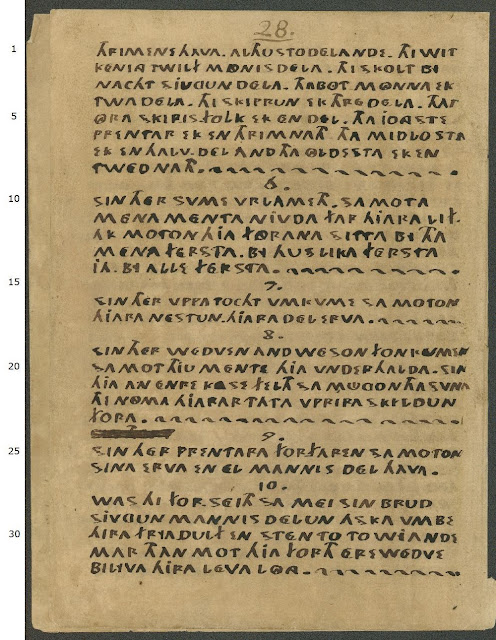 28.
THRIMENS HAVA. AL THUS TO DELANDE. THI WIT
KENING TWILF MONNIS DELA. THI SKOLT BI
NACHT SIUGUN DELA. THA BOTMONNA EK
TWA DELA. THI SKIPRUN EK THRE DELA. THAT
ORA SKIPIS FOLK EK EN DEL. THA JONGSTE
PRENTAR EK EN THRIMNATH. THA MIDLOSTA
EK EN HALV. DEL AND THA OLDESTA EK EN
TWEDNATH.
6.
SIN THER SUME VRLAMETH. SA MOTA
MENA MENTA NIUDA FAR HIARA LIF.
AK MOTON HIA FORANA SITTA BI THA
MENA FERSTA. BI HUSLIKA FERSTA
JA. BI ALLE FERSTA.
7.
SIN THER UPPA TOCHT UMKUME SA MOTON
HIARA NESTUN. HIARA DEL ERVA.
8.
SIN THER WEDVEN AND WESON FON KUMEN
SA MOT THJU MENTE HIA UNDERHALDA. SIN
HIA AN ENRE KASE FELTH SA MUGON THA SUNA
THI NOMA HIARAR TATA UPPIRA SKELDUN
FORA.
9.
SIN THER PRENTARA FORFAREN SA MOTON
SINA ERVA EN EL MANNIS DEL HAVA.
10.
WAS HI FOR.SEITH SA MEI SIN BRUD
SIUGUN MANNIS DELUN ASKA UMBE
HIRA FRYADULF EN STEN TO TO WIANDE
MAR THAN MOT HIA FORTH ERE WEDVE
BILIVA HIRA LEVA LOG.